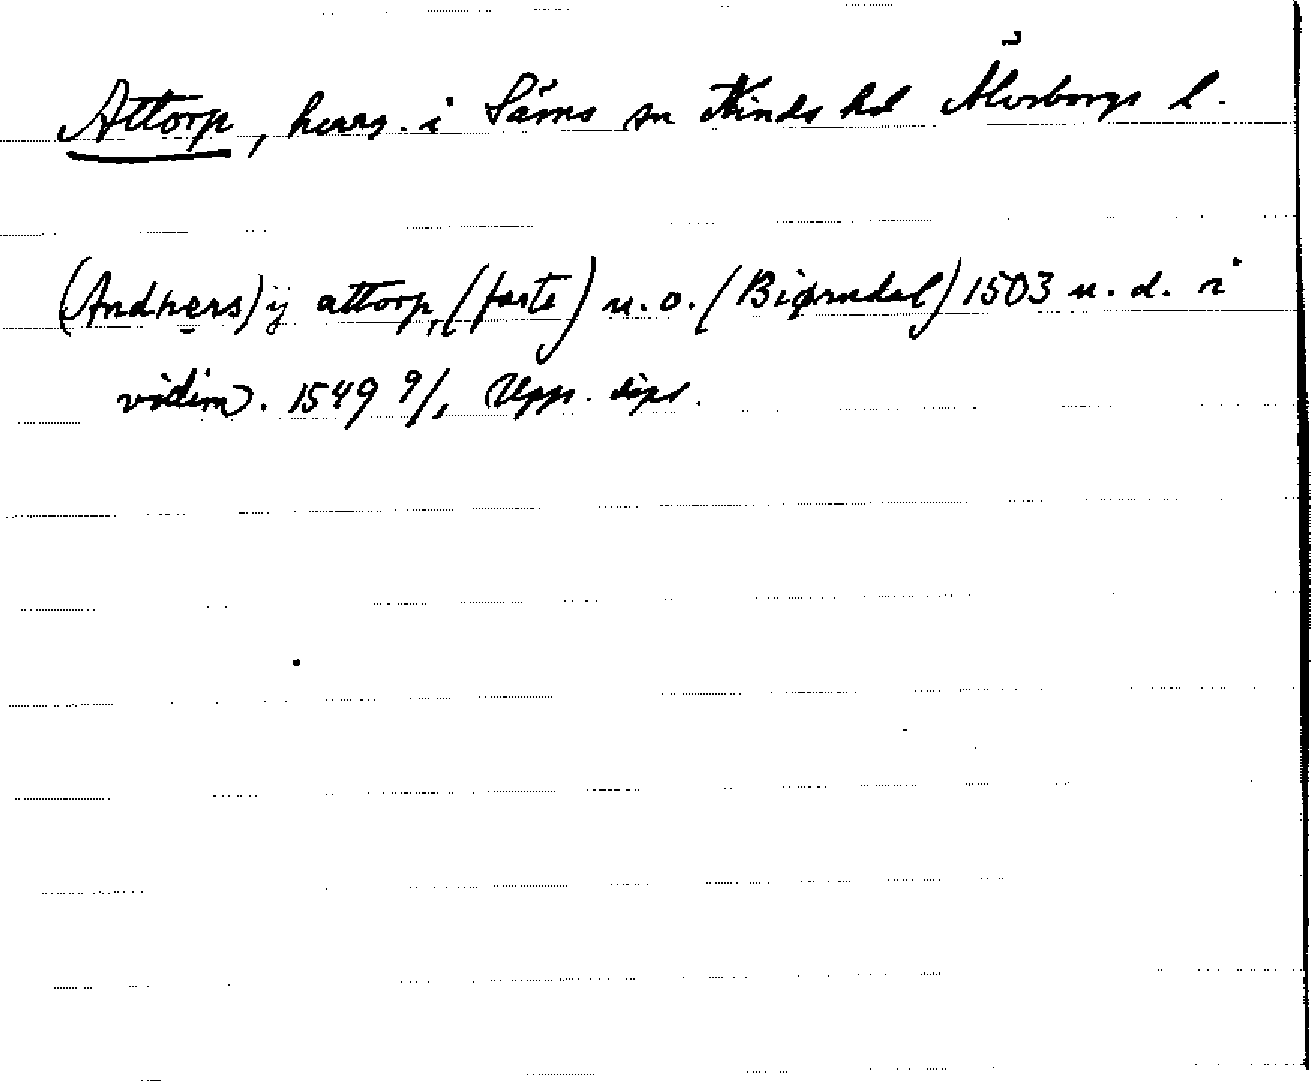 Attorp, herrg. i Säms sn Kinds hd Älvsborgs l.
(Andhers) ij attorp, (faste) u.o. (Biørndal) 1503 u. d. i
vidim. 1549 9/1 Upps. dipl.